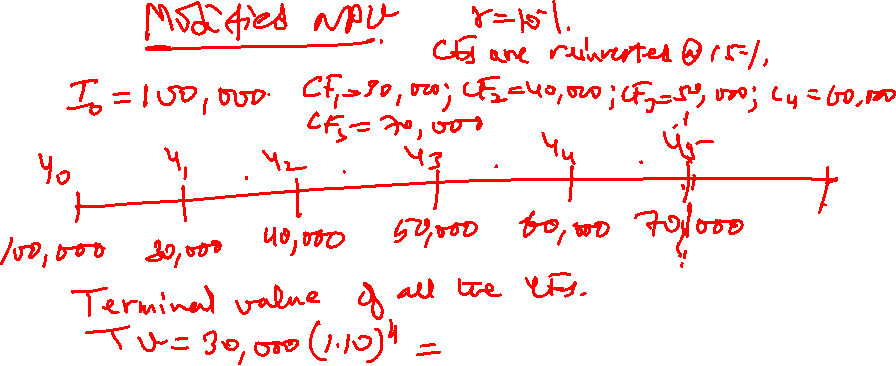 Modified NPV r=10%.
CFs are reinverted @ 15%.
I₀ = 100,000. CF₁=30,000; CF₂=40,000; CF₃=50,000; C₄=60,000
CF₅=70,000
Y₀ Y₁ Y₂ Y₃ Y₄ Y₅
100,000 30,000 40,000 50,000 60,000 70,000
Terminal value of all the CFs.
TV=30,000(1.10)⁴ =